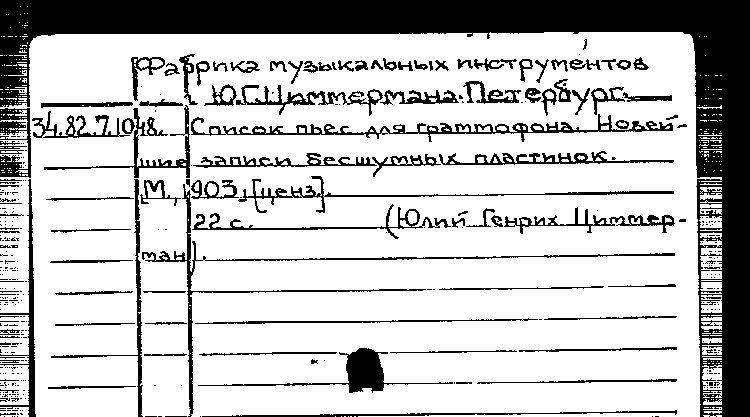 Фабрика музыкальных инструментов
Ю.Г.Циммермана. Петербург.
34.82.7.1048. Список пьес для граммофона. Новей-
шие записи бесшумных пластинок.
[М., 1903, [ценз].
22 с. (Юлий Генрих Циммер-
ман).